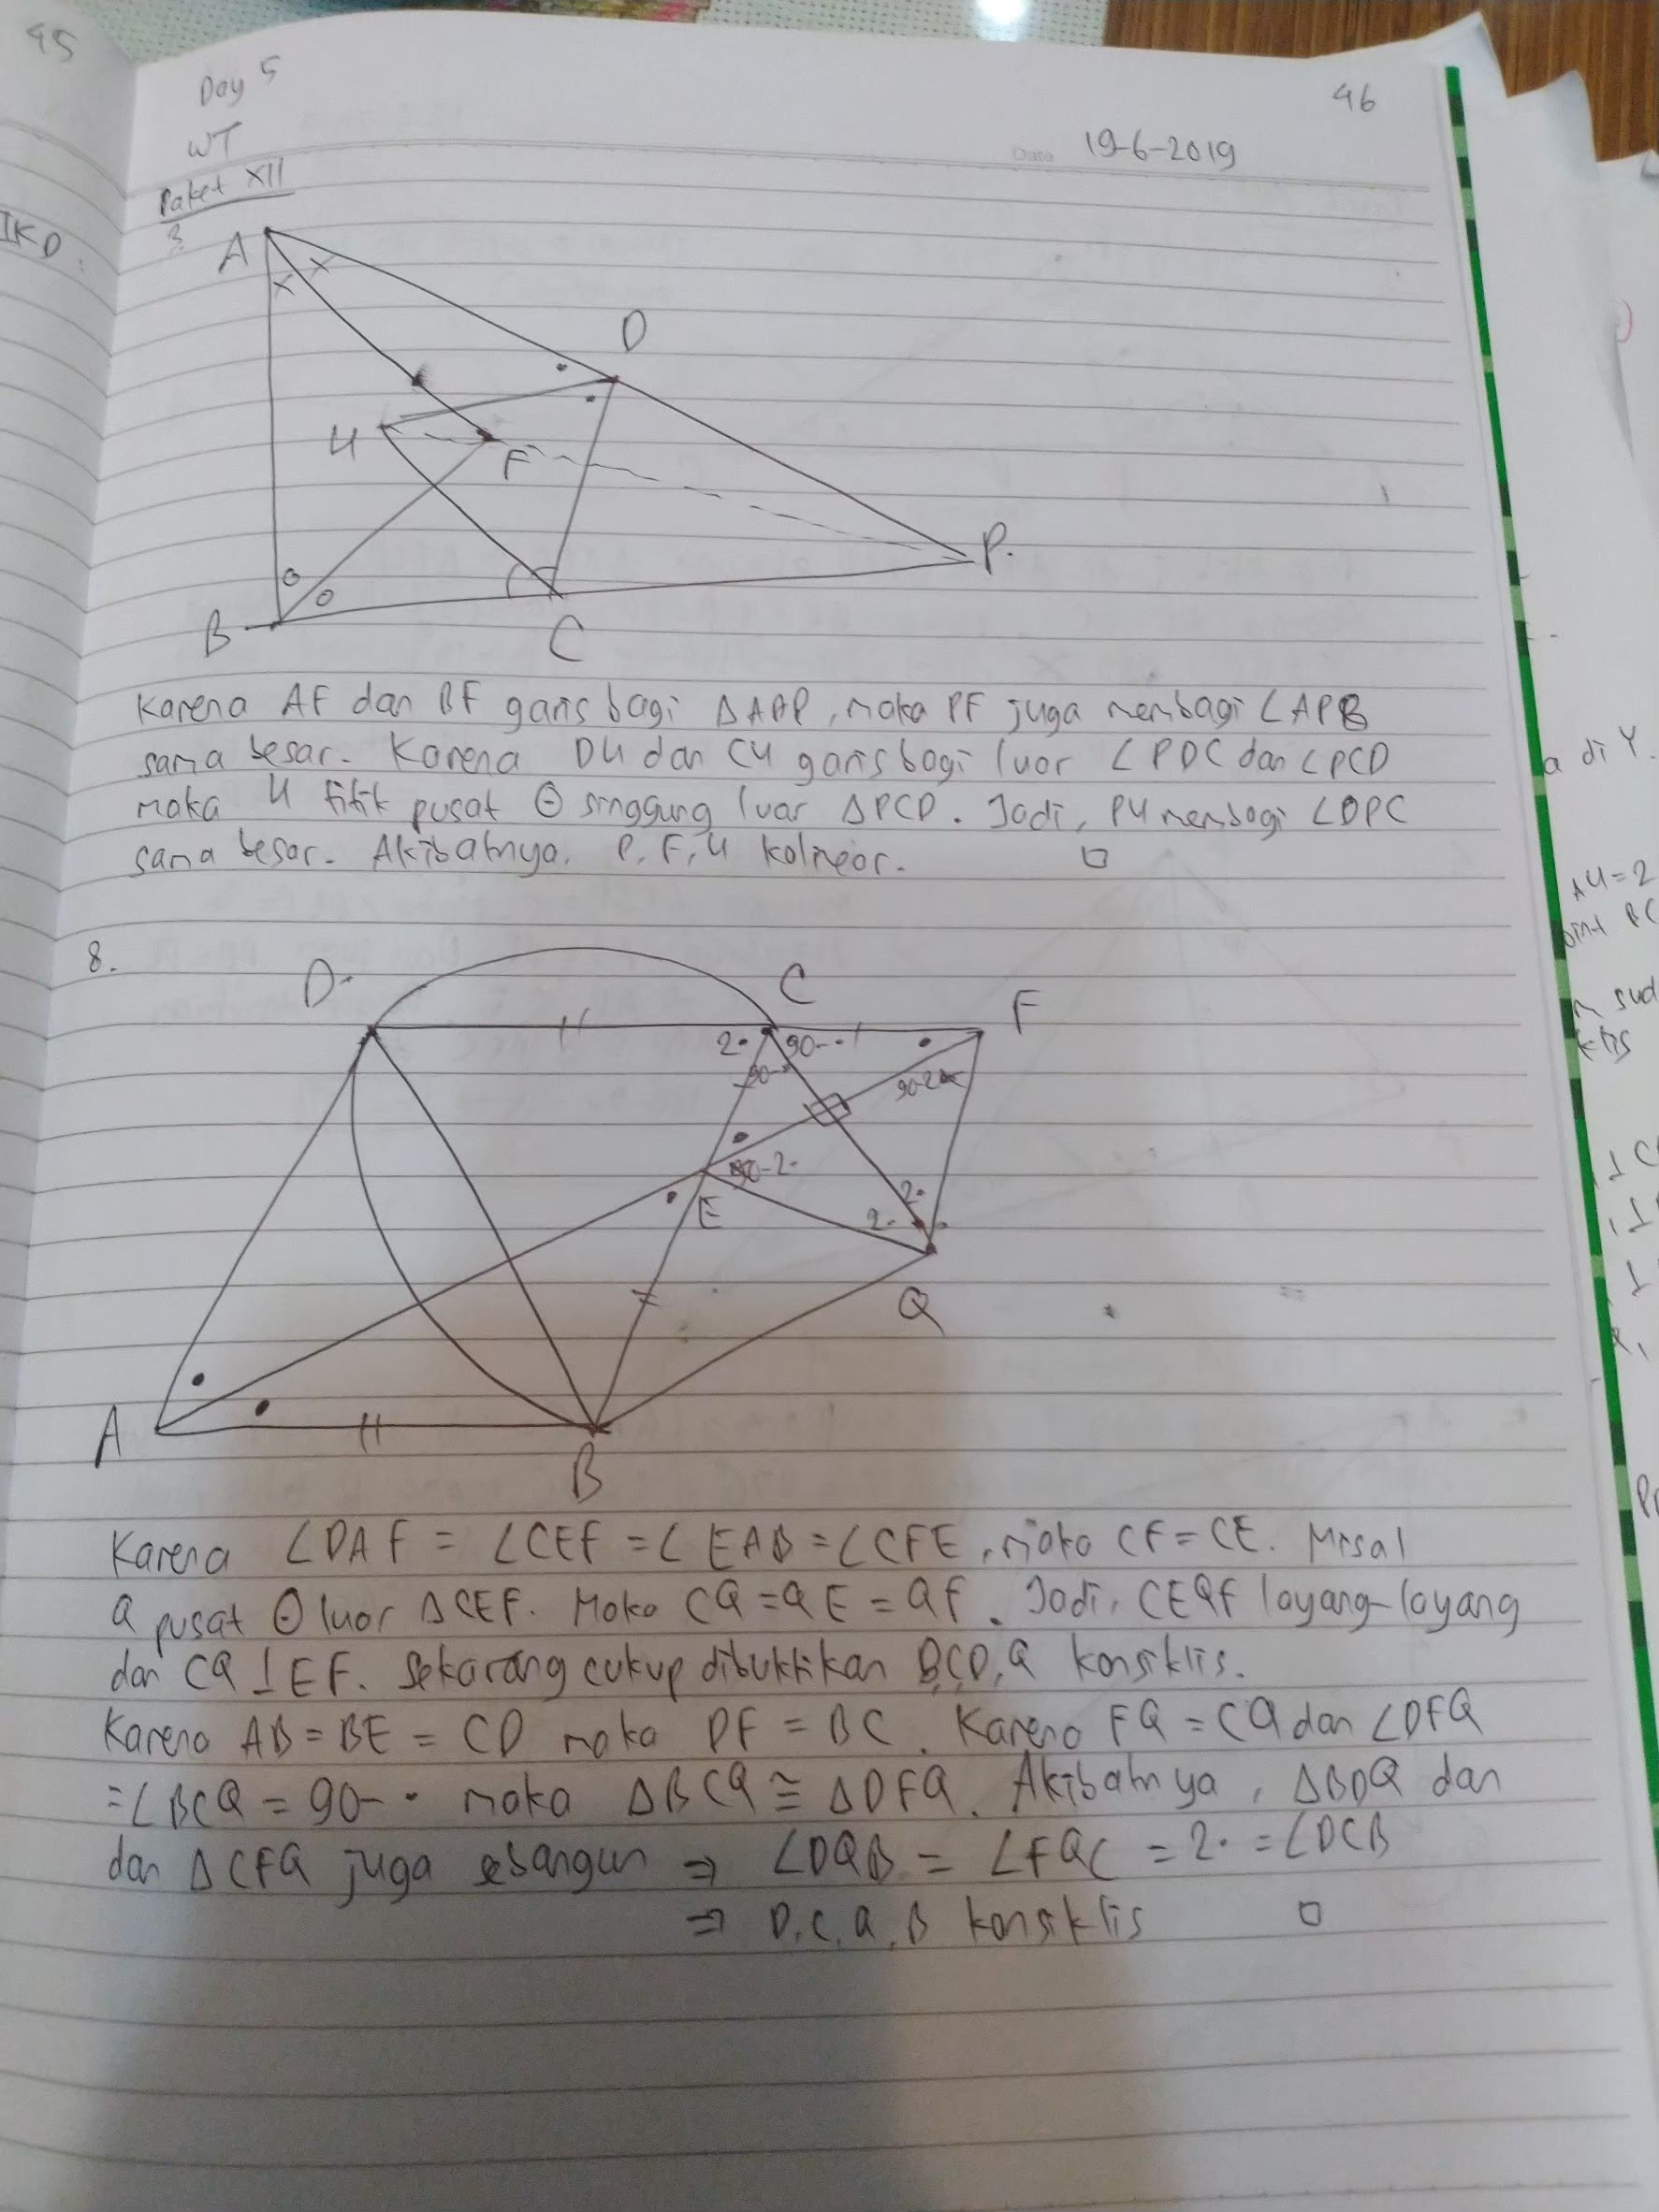 45
Day 5
46
WT
Date 19-6-2019
Paket XII
IKD:
3.
A
x
x
D
H
F
P.
B
C
Karena AF dan BF garis bagi △ABP, maka PF juga membagi ∠APB
sama besar. Karena DH dan CH garis bagi luar ∠PDC dan ∠PCD
maka H titik pusat ⊙ singgung luar △PCD. Jadi, PH membagi ∠DPC
sama besar. Akibatnya, P, F, H kolinear. □
8.
D
C
F
2•
90-•
90-•
90-2•
90-2•
E
2•
2•
Q
A
B
Karena ∠DAF = ∠CEF = ∠EAB = ∠CFE, maka CF = CE. Misal
Q pusat ⊙ luar △CEF. Maka CQ = QE = QF. Jadi, CEQF layang-layang
dan CQ ⊥ EF. Sekarang cukup dibuktikan B,C,D,Q konsiklis.
Karena AB = BE = CD maka DF = BC. Karena FQ = CQ dan ∠DFQ
= ∠BCQ = 90-• maka △BCQ ≅ △DFQ. Akibatnya, △BDQ dan
dan △CFQ juga sebangun ⇒ ∠DQB = ∠FQC = 2• = ∠DCB
⇒ D,C,Q,B konsiklis □
a di Y.
AH=2